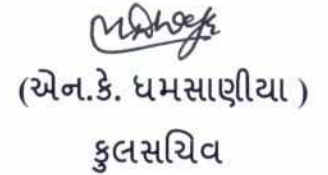 (એન.કે. ધમસાણીયા )
કુલસચિવ